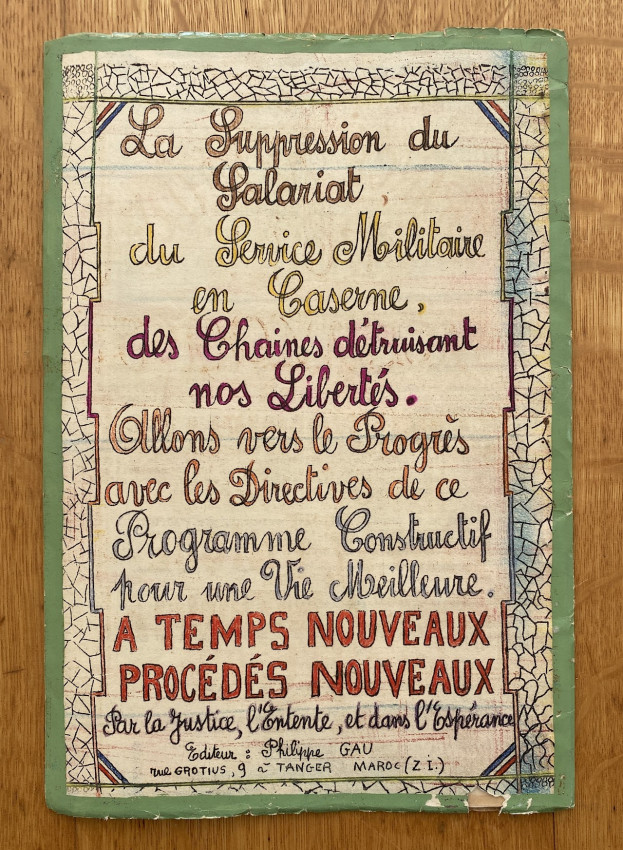 La Suppression du
Salariat
du Service Militaire
en Caserne,
des Chaines détruisant
nos Libertés.
Allons vers le Progrès
avec les Directives de ce
Programme Constructif
pour une Vie Meilleure.
A TEMPS NOUVEAUX
PROCÉDÉS NOUVEAUX
Par la Justice, l'Entente, et dans l'Espérance
Editeur : Philippe GAU
rue GROTIUS, 9 à TANGER MAROC (Z I.)